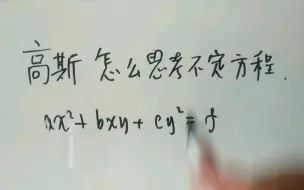 高斯 怎么思考不定方程.
ax²+bxy+cy²=f